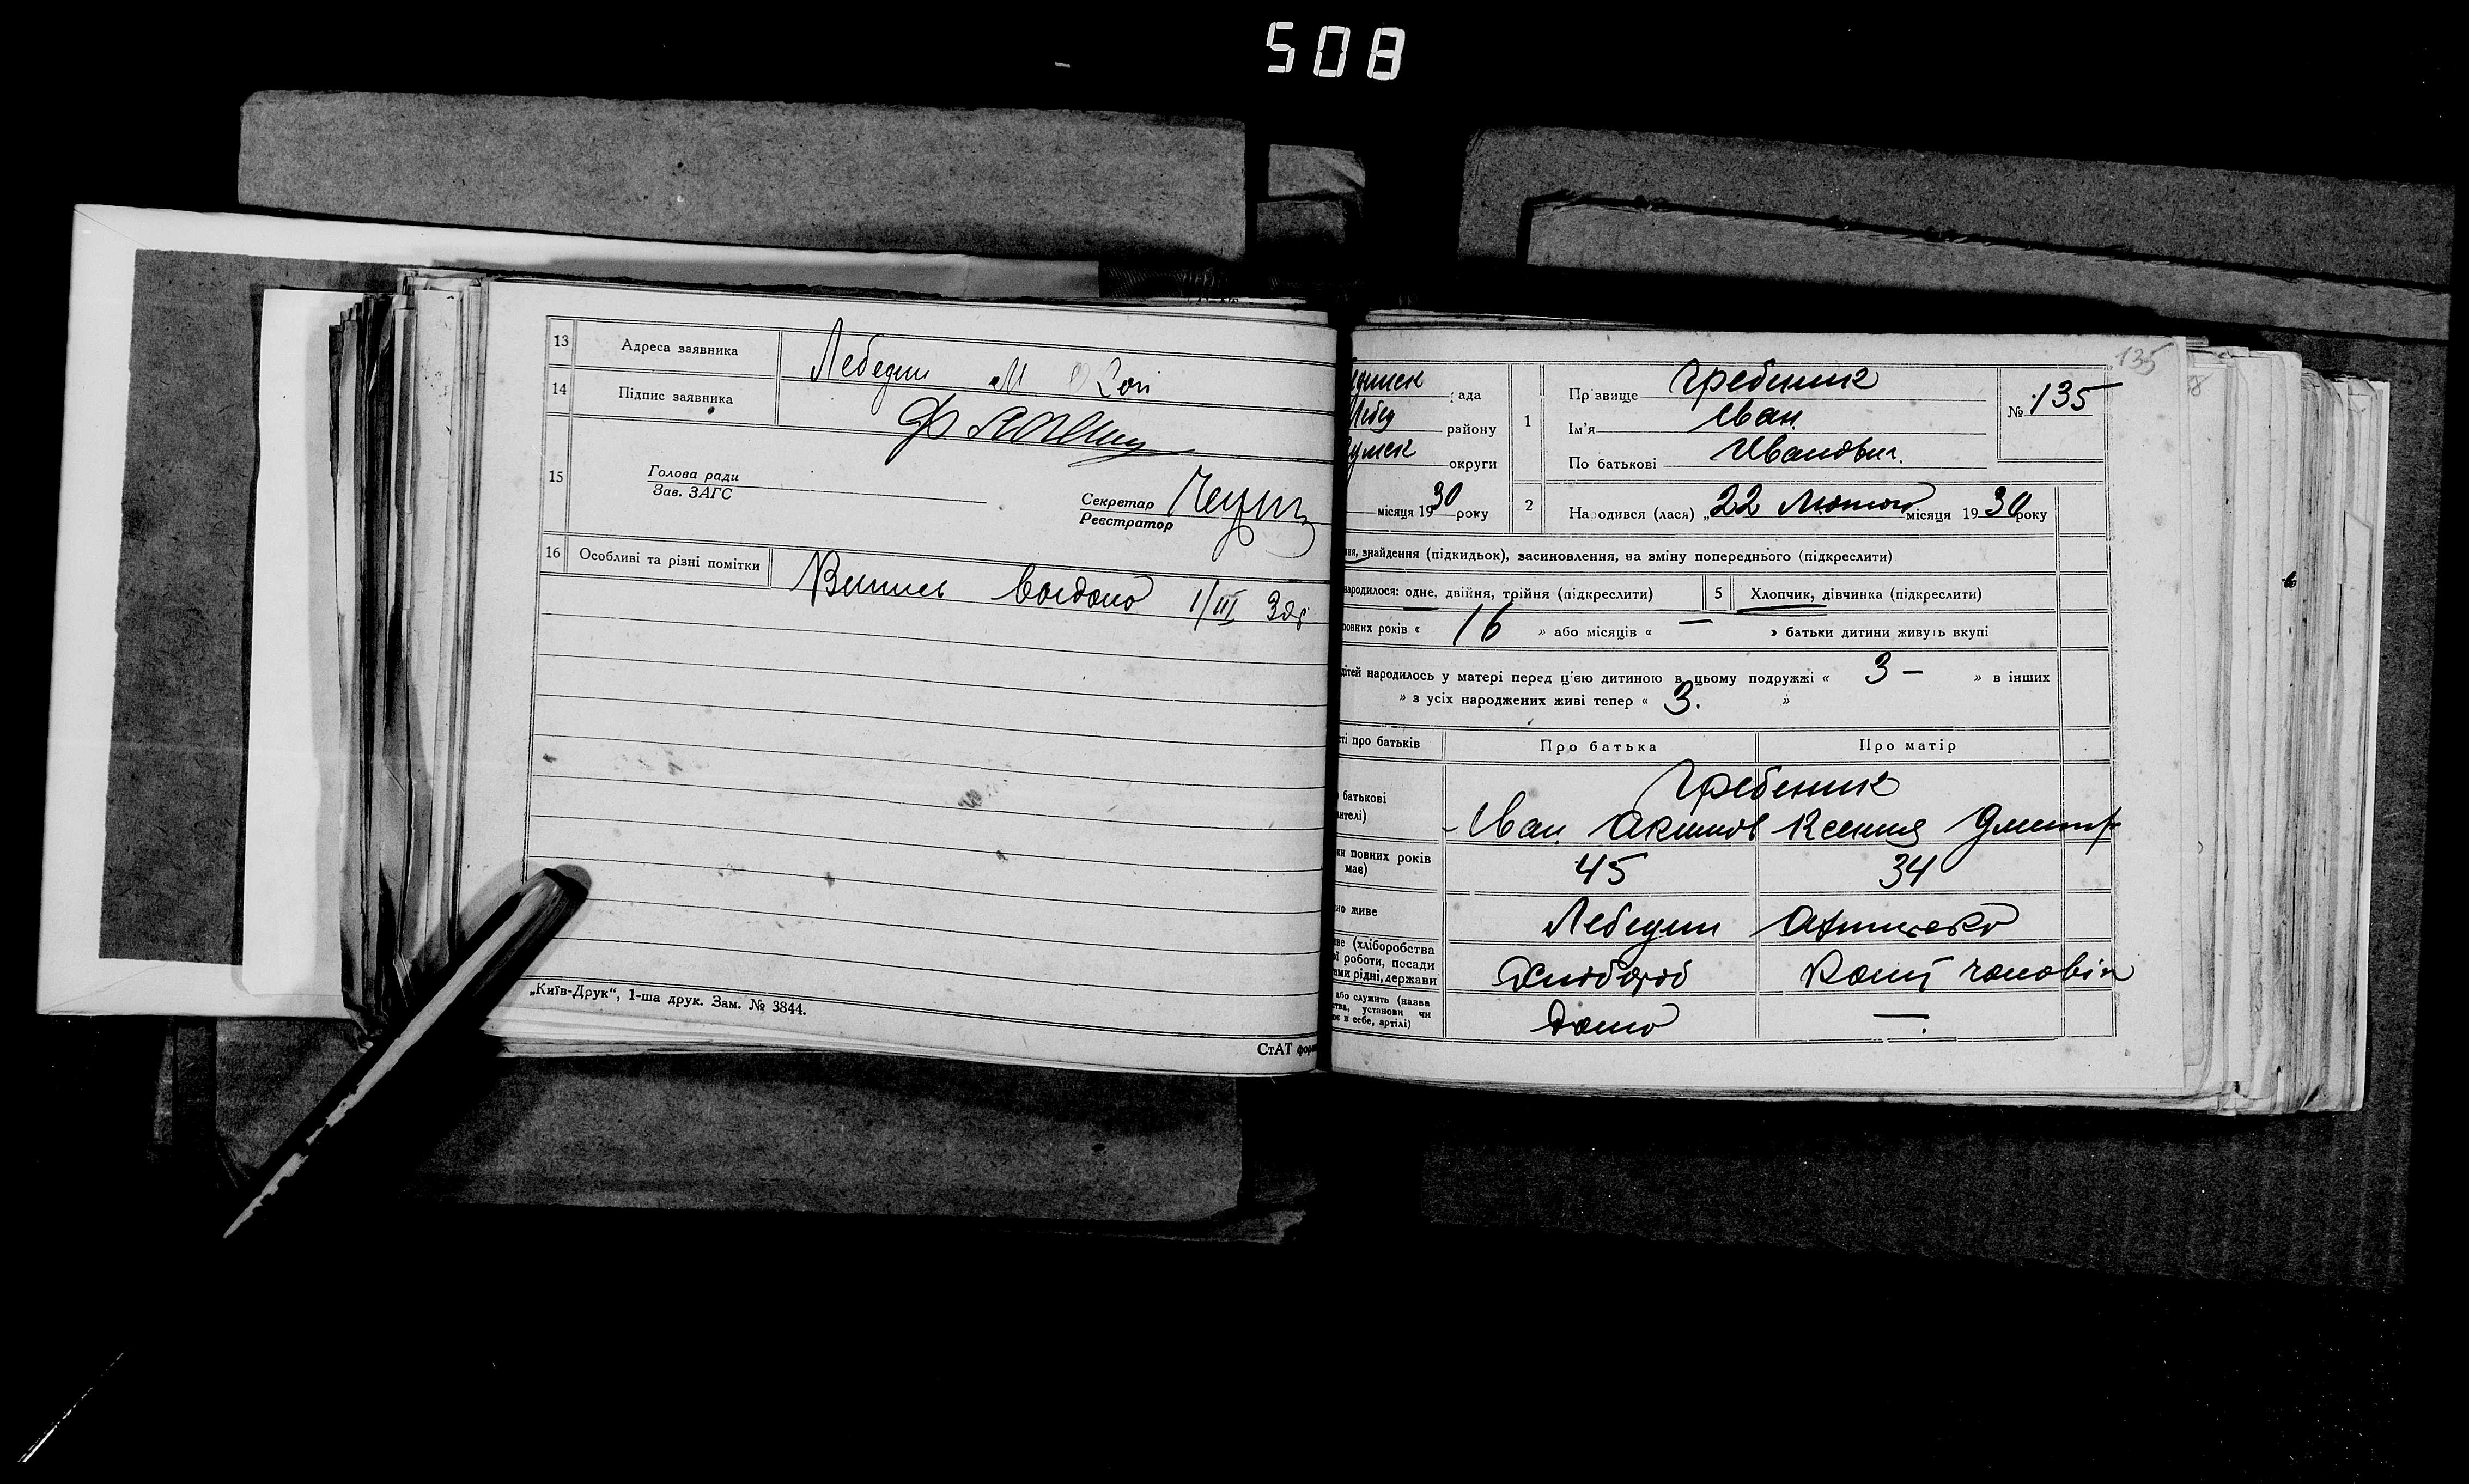 508
13 Адреса заявника Лебедин
14 Підпис заявника
15 Голова ради
Зав. ЗАГС
Секретар
Реєстратор
16 Особливі та різні помітки Випись видано 1/III 30р
„Київ-Друк“, 1-ша друк. Зам. № 3844.
СтАТ
135
ради
району
округи
30
місяця 1930 року
1 Прізвище Гребеник
Ім'я Иван
По батькові Иванович
№ 135
2 Народився (лася) „22 Лютого місяця 1930 року
знайдення (підкидьок), засиновлення, на зміну попереднього (підкреслити)
народилося: одне, двійня, трійня (підкреслити) 5 Хлопчик, дівчинка (підкреслити)
повних років « 16 » або місяців « — » батьки дитини живуть вкупі
дітей народилось у матері перед цією дитиною в цьому подружжі « 3 – » в інших
» з усіх народжених живі тепер « 3. »
про батьків Про батька Про матір
батькові
Гребеник
Иван Акимов Ксения Дмитр
повних років
має)
45 34
живе Лебедин
(хліборобства
роботи, посади
рідні, держави
Хлібороб чоловік
або служить (назва
установи чи
в себе, артілі)
Дома —.